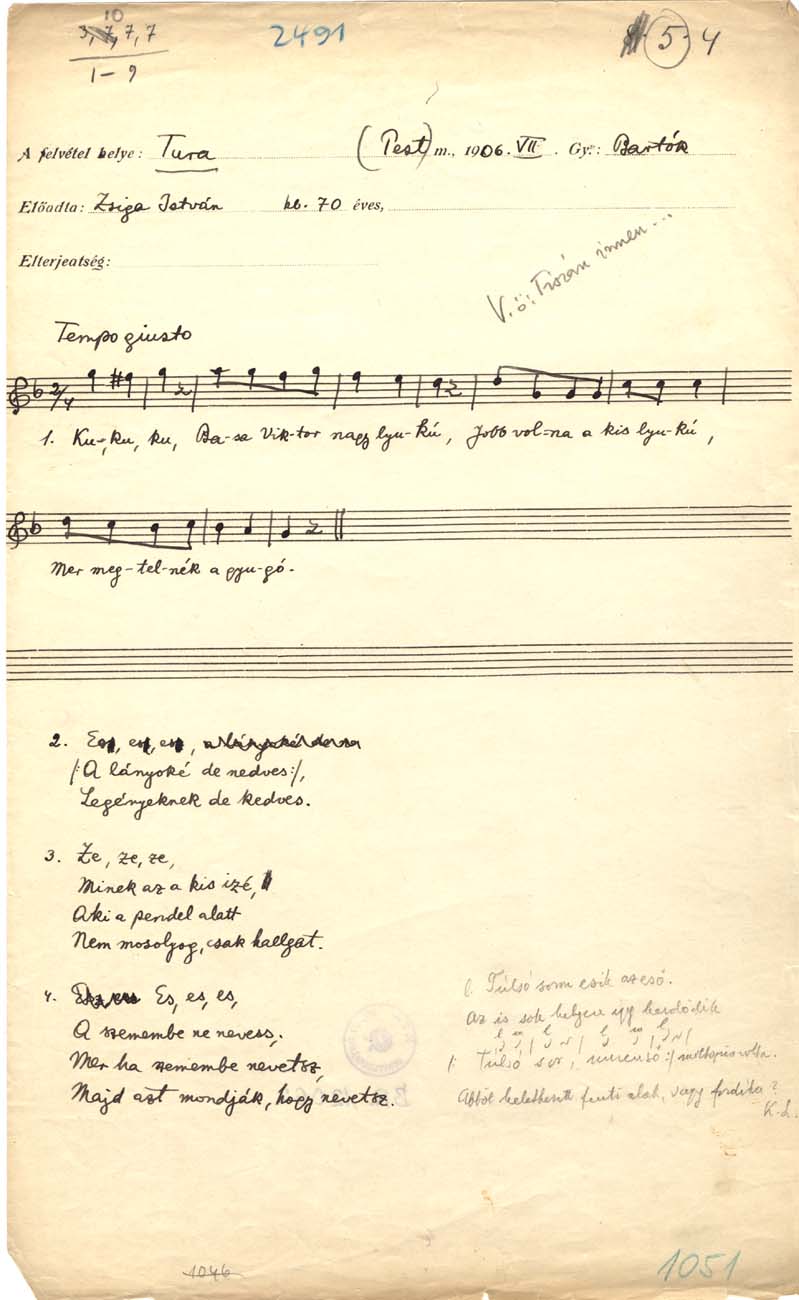 10
3, 7, 7, 7
1-9
2491
5 4
A felvétel helye: Tura (Pest) m., 1906. VII. Gy.: Bartók
Előadta: Zsiga István kb. 70 éves,
Elterjedtség:
V.ö: Tiszán innen...
Tempo giusto
2/4
1. Ku-, ku, ku, Ba-sa Vik-tor nagy lyu-kú, Jobb vol-na a kis lyu-kú,
Mer meg-tel-nék a gyu-gó.
2. Es, es, es,
/: A lányoké de nedves :/,
Legényeknek de kedves.
3. Ze, ze, ze,
Minek az a kis izé,
Aki a pendel alatt
Nem mosolyog, csak hallgat.
4. Es, es, es,
A szemembe ne nevess,
Mer ha szemembe nevetsz,
Majd azt mondják, hogy nevetsz.
l. Túlsó soron esik az eső.
Az is sok helyen így kezdődik
l m l l m l
/: Túlsó sor, innenső :/
Abból keletkezett fenti alak, vagy fordítva?
K. L.
1046
1051